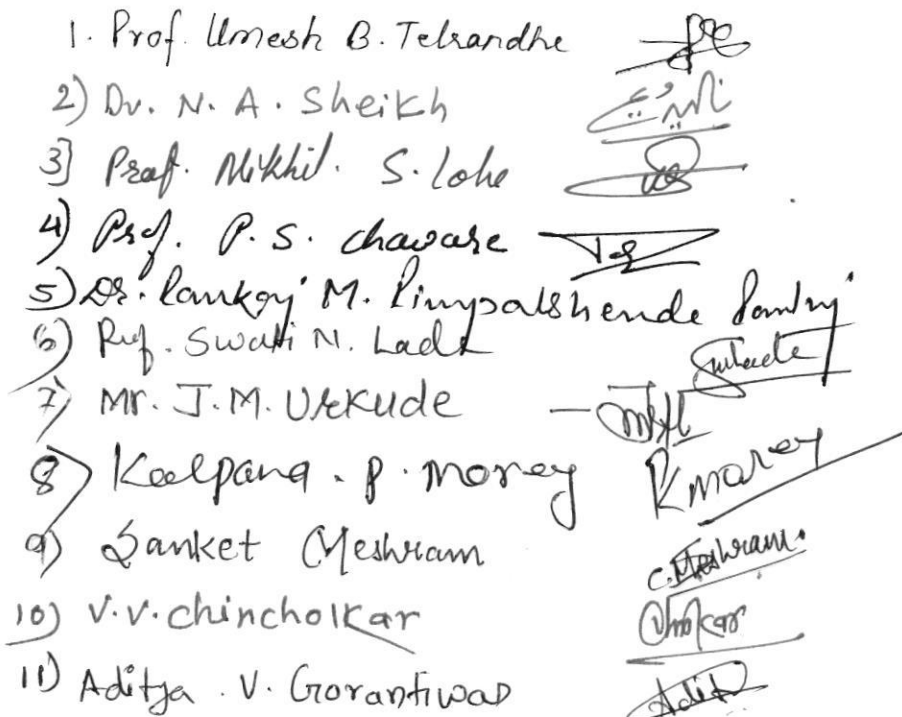 1. Prof. Umesh B. Telrandhe
2) Dr. N. A. Sheikh
3] Prof. Nikhil. S. Lohe
4) Prof. P. S. Chaware
5) Dr. Pankaj M. Pimpalshende Pankaj
6) Prof. Swati N. Lade
7) Mr. J.M. Urkude
8) Kalpana. P. Morey Kmorey
9) Sanket Meshram C. Meshram.
10) V.V. Chincholkar
11) Aditya. V. Gorantiwar Adit